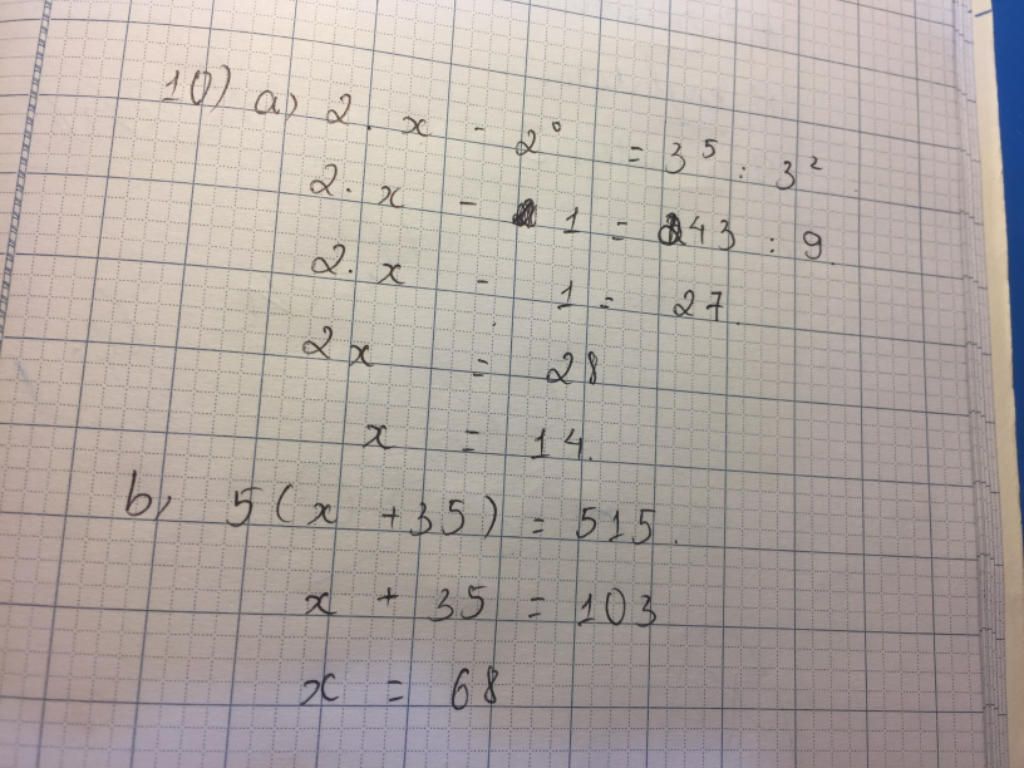 10) a) 2. x - 2⁰ = 3⁵ : 3²
2. x - 1 = 243 : 9.
2. x - 1 = 27.
2x = 28
x = 14.
b, 5(x + 35) = 515.
x + 35 = 103
x = 68